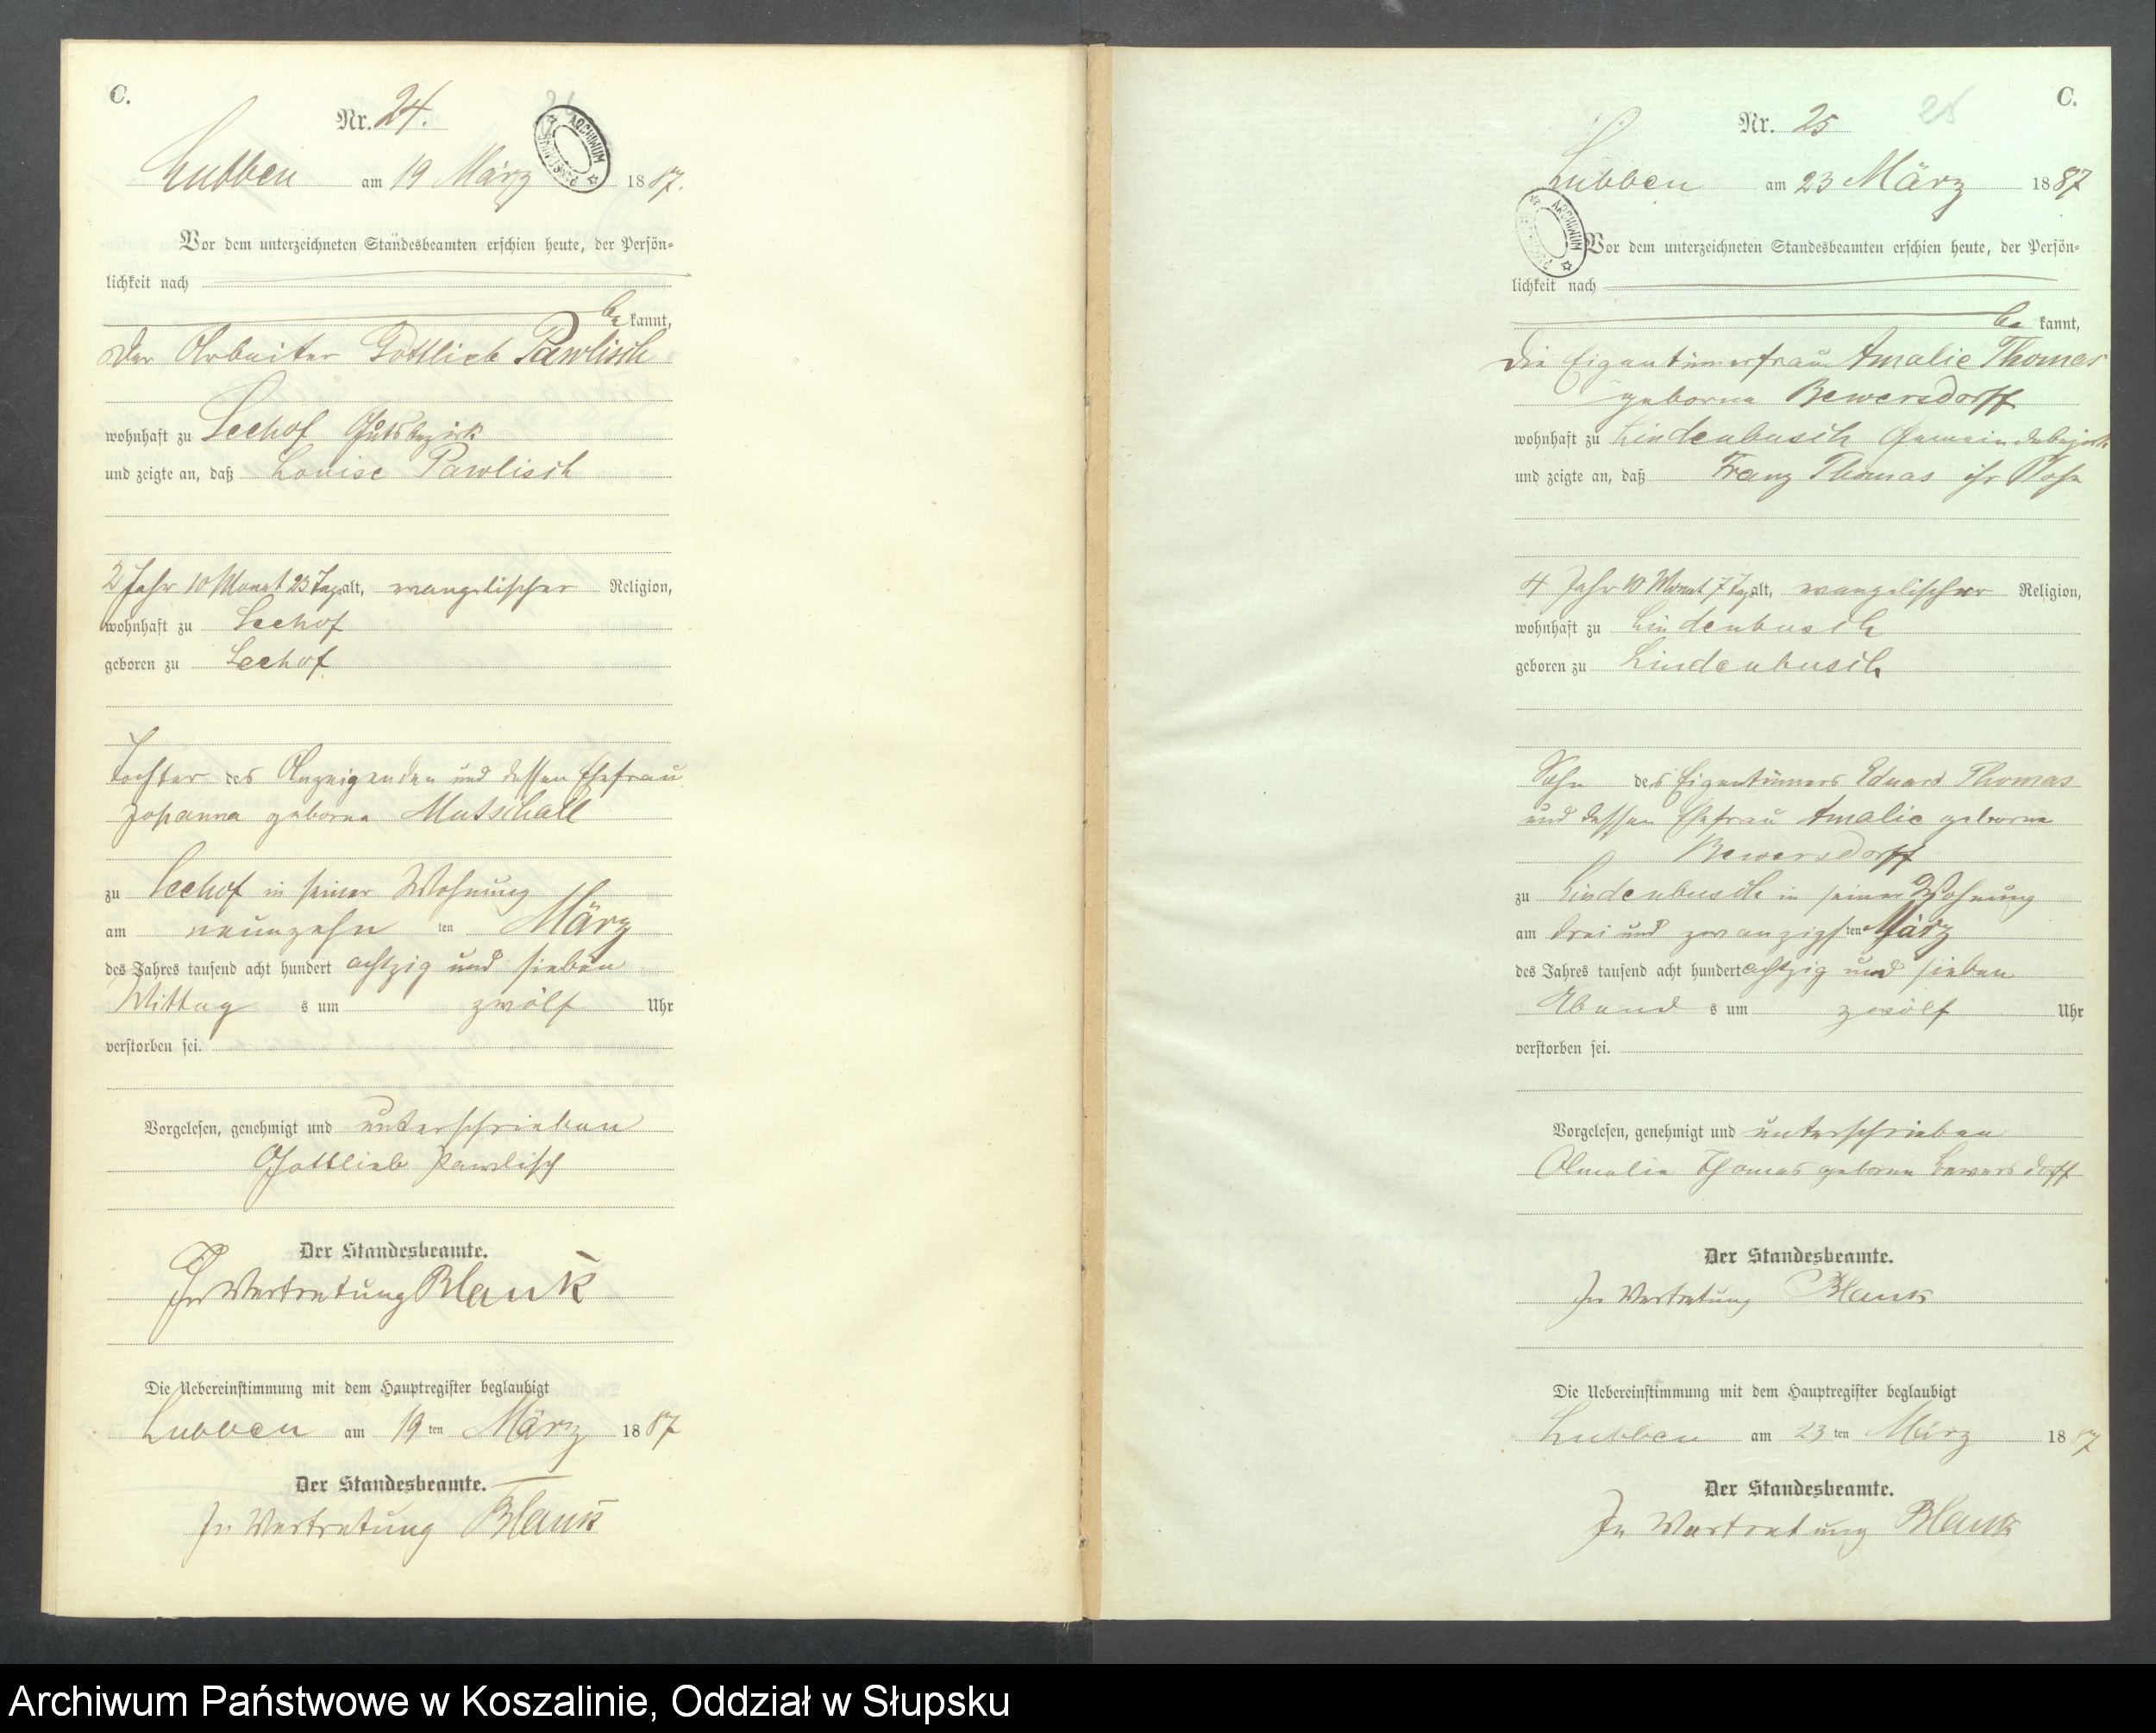 C.
Nr. 24.
ARCHIWUM PAŃSTWOWE
Lubben am 19 März 1887.
Vor dem unterzeichneten Standesbeamten erschien heute, der Persön-
lichkeit nach
be kannt,
der Arbeiter Gottlieb Pawlisch
wohnhaft zu Seehof Gutsbezirk
und zeigte an, daß Louise Pawlisch
2 Jahr 10 Monat 23 Tage alt, evangelischer Religion,
wohnhaft zu Seehof
geboren zu Seehof
Tochter des Anzeigenden und dessen Ehefrau
Johanna geborne Mutschall
zu Seehof in seiner Wohnung
am neunzehn ten März
des Jahres tausend acht hundert achtzig und sieben
Mittag s um zwölf Uhr
verstorben sei.
Vorgelesen, genehmigt und unterschrieben
Gottlieb Pawlisch
Der Standesbeamte.
In Vertretung Blank
Die Uebereinstimmung mit dem Hauptregister beglaubigt
Lubben am 19 ten März 1887
Der Standesbeamte.
In Vertretung Blank
C.
Nr. 25 25
Lubben am 23 März 1887
ARCHIWUM
Vor dem unterzeichneten Standesbeamten erschien heute, der Persön-
lichkeit nach
be kannt,
die Eigentümerfrau Amalie Thomas
geborne Bewersdorff
wohnhaft zu Lindenbusch Gemeindebezirk
und zeigte an, daß Franz Thomas ihr Sohn
4 Jahr 10 Monat 7 Tag alt, evangelischer Religion,
wohnhaft zu Lindenbusch
geboren zu Lindenbusch
Sohn des Eigentümers Eduard Thomas
und dessen Ehefrau Amalie geborne
Bewersdorff
zu Lindenbusch in seiner Wohnung
am drei und zwanzigs ten März
des Jahres tausend acht hundert achtzig und sieben
Abend s um zwölf Uhr
verstorben sei.
Vorgelesen, genehmigt und unterschrieben
Amalie Thomas geborne Bewersdorff
Der Standesbeamte.
In Vertretung Blank
Die Uebereinstimmung mit dem Hauptregister beglaubigt
Lubben am 23 ten März 1887
Der Standesbeamte.
In Vertretung Blank
Archiwum Państwowe w Koszalinie, Oddział w Słupsku